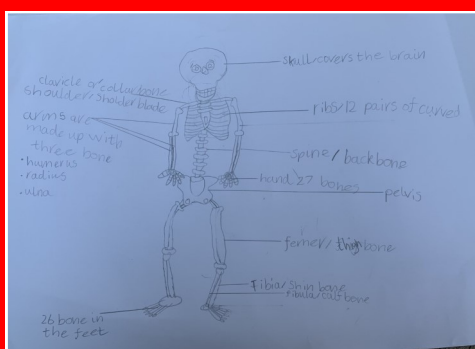 skull covers the brain
clavicle or collar bone
shoulder/shoulder blade
ribs × 12 pairs of curved
arms are
made up with
three bone
• humerus
• radius
• ulna
spine / backbone
hand 27 bones
pelvis
femer / thigh bone
Tibia/shin bone
fibula/calf bone
26 bone in
the feet